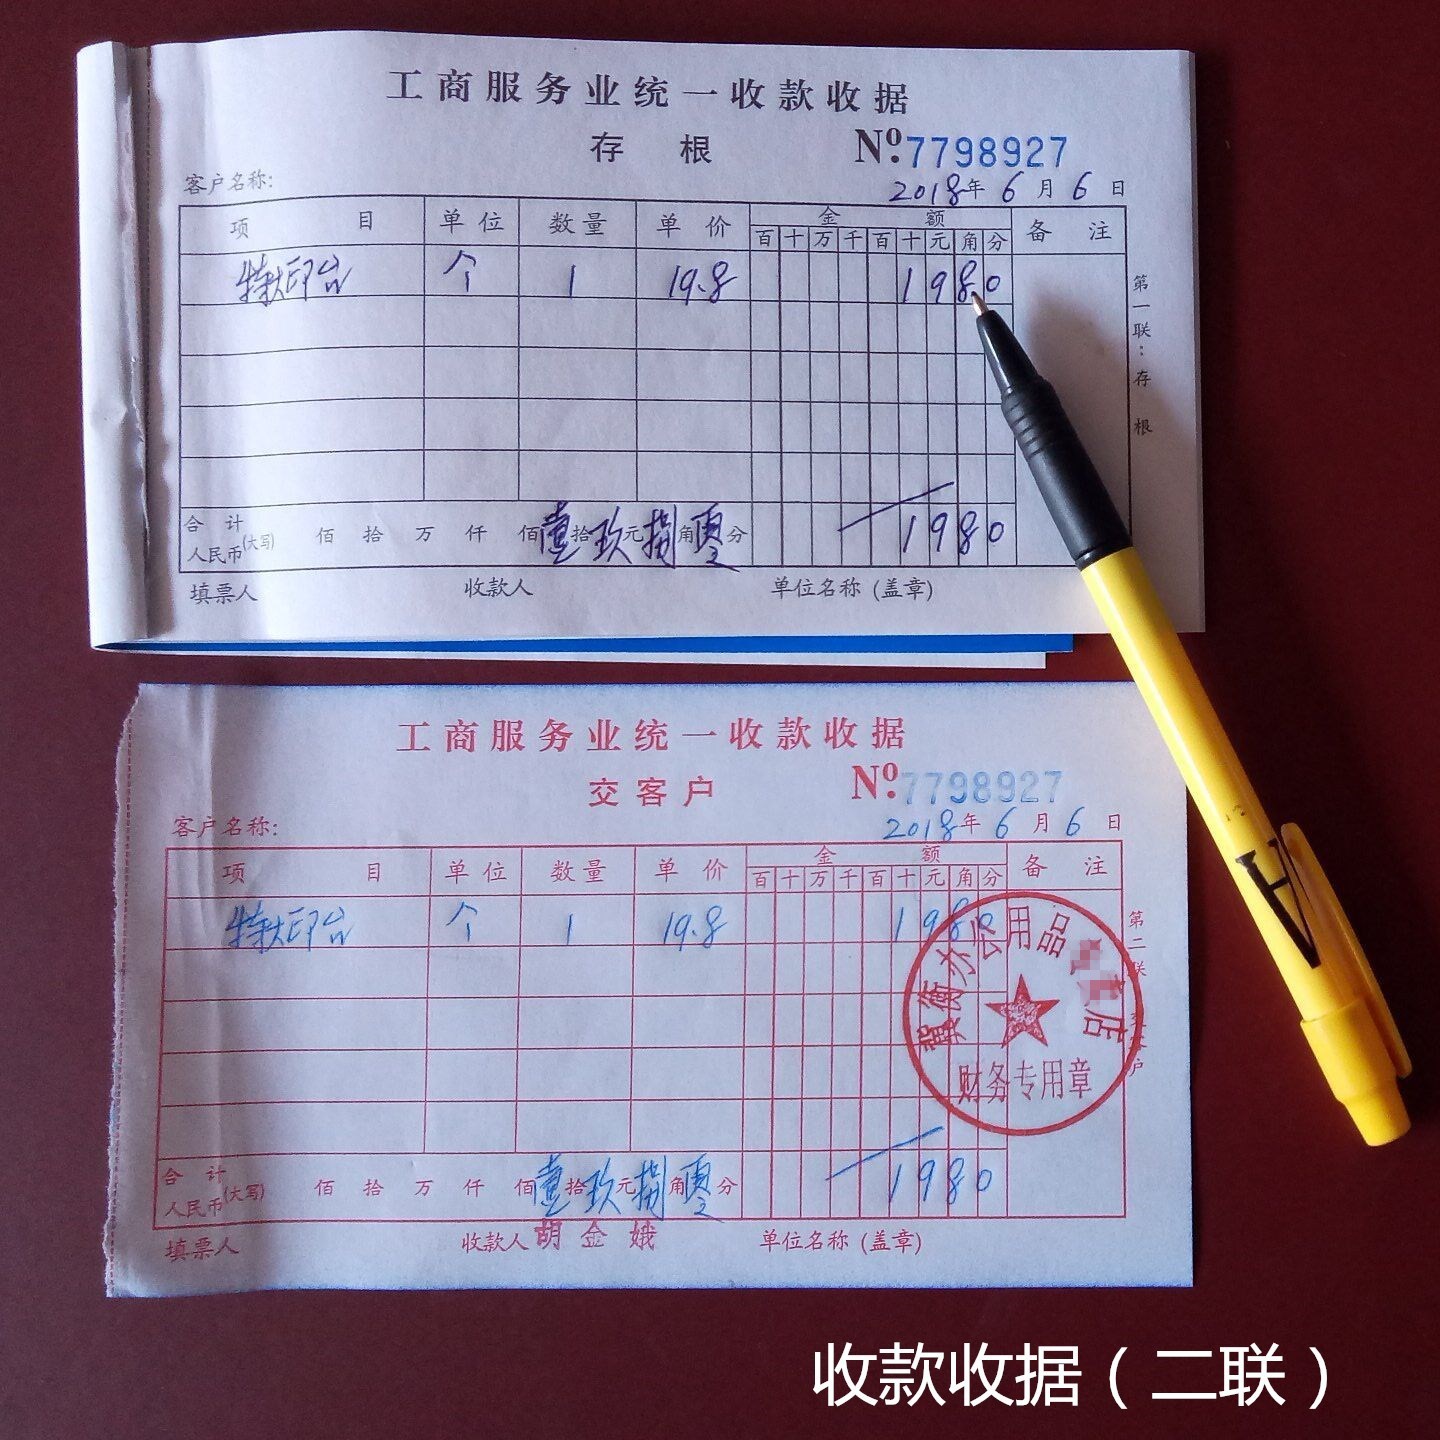 工商服务业统一收款收据
存根 Nº:7798927
客户名称: 2018年6月6日
项目 单位 数量 单价 金额 备注
百十万千百十元角分
特大印台 个 1 19.8 1980
第一联:存根
合计
人民币(大写) 佰 拾 万 仟 佰壹拾玖元捌角零分 1980
填票人 收款人 单位名称(盖章)
工商服务业统一收款收据
交客户 Nº:7798927
客户名称: 2018年6月6日
项目 单位 数量 单价 金额 备注
百十万千百十元角分
特大印台 个 1 19.8 1980
第二联
户
冀衡办公用品 店
财务专用章
合计
人民币(大写) 佰 拾 万 仟 佰壹拾玖元捌角零分 1980
填票人 收款人 胡金娥 单位名称(盖章)
收款收据(二联)